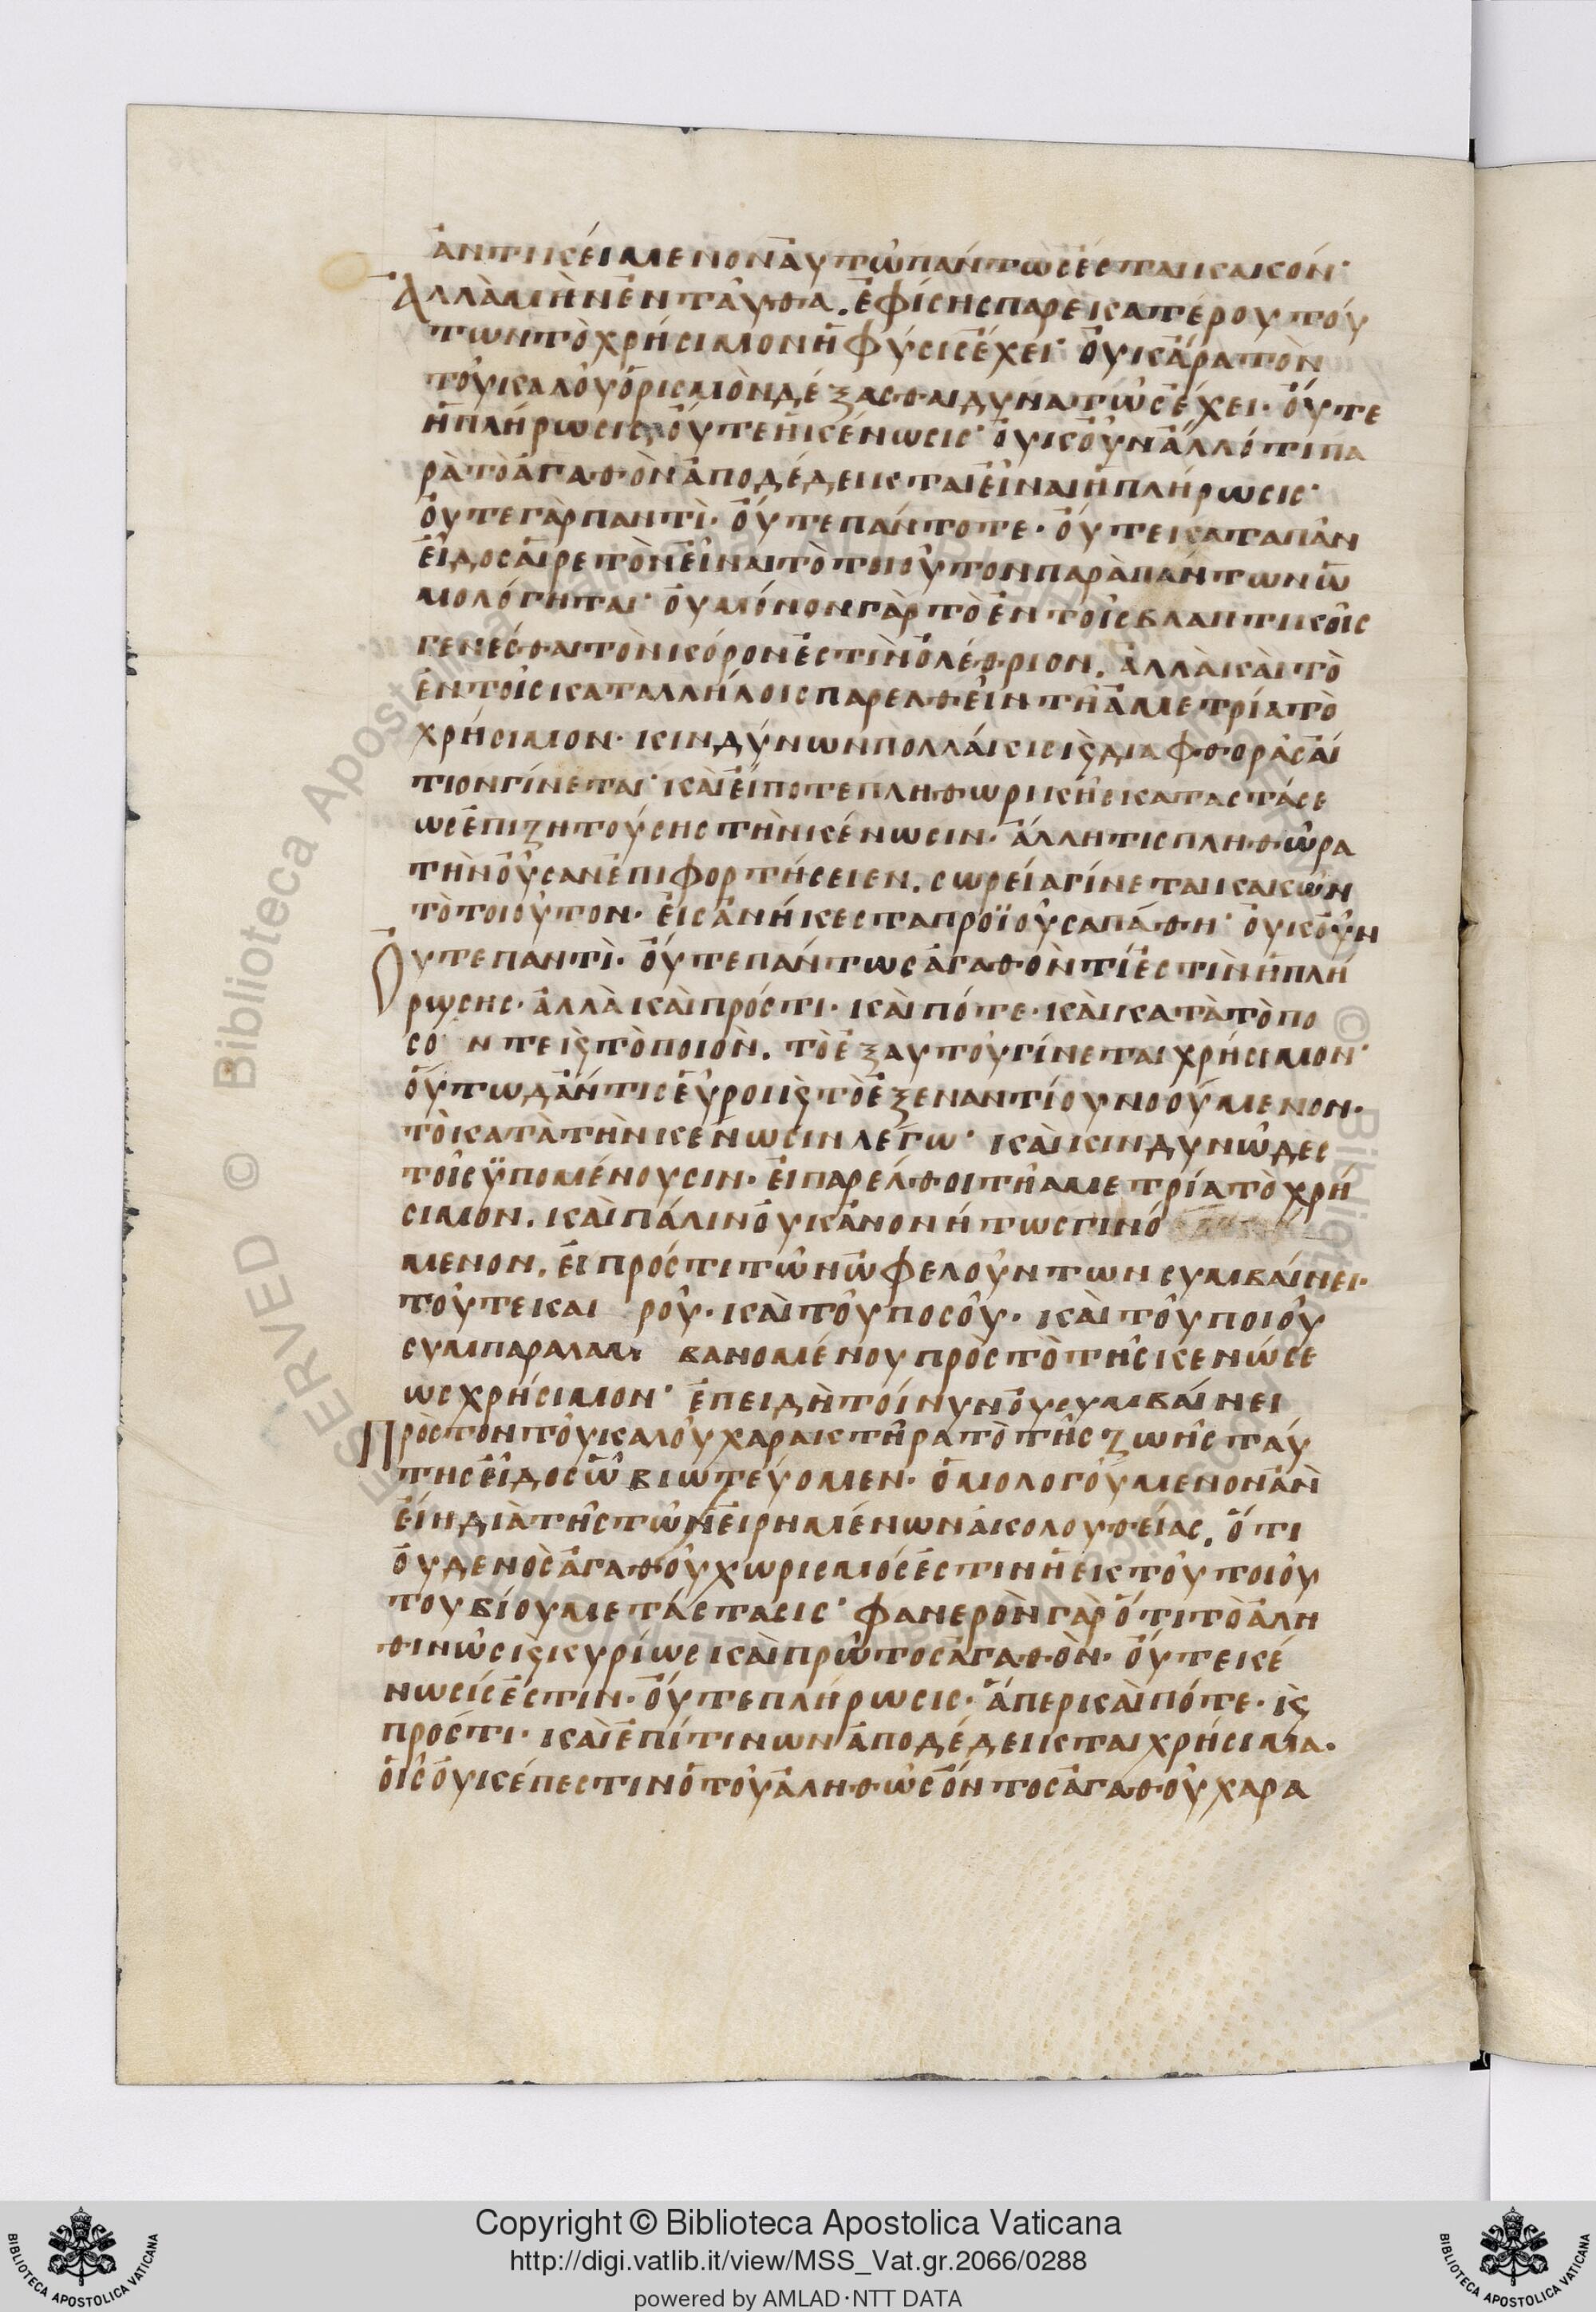 ἀντικείμενον αὐτῶ πάντως ἔσται κακόν·
Ἀλλὰ μὴν ἐνταῦθα. ἐφίσης παρ ἑκατέρου τού
των τὸ χρήσιμον ἡ φύσις ἔχει· οὐκ ἄρα τὸν
τοῦ καλοῦ ὁρισμὸν δέξασθαι δυνατῶς ἔχει. οὔτε
ἡ πλήρωσις, οὔτε ἡ κένωσις· οὐκοῦν ἄλλό τι πα
ρὰ τὸ ἀγαθὸν ἀποδέδεικται εἶναι ἡ πλήρωσις·
οὔτε γὰρ παντὶ. οὔτε πάντοτε. οὔτε κατα πᾶν
εἶδος αἱρετὸν εἶναι τὸ τοιοῦτον παρὰ πάντων ὡ
μολόγηται· οὐ μόνον γὰρ τὸ ἐν τοῖς βλαπτικοῖς
γενέσθαι τὸν κόρον ἐστὶν ὀλέθριον. ἀλλὰ καὶ τὸ
ἐν τοῖς καταλλήλοις παρελθεῖν τῆ ἀμετρία τὸ
χρήσιμον. κινδύνων πολλάκις κ̀ διαφθορᾶς αἴ
τιον γίνεται· καὶ εἴ ποτε πληθωρικῆς καταστάσε
ως ἐπιζητούσης τὴν κένωσιν. ἄλλη τις πληθῶρα
τὴν οὖσαν ἐπιφορτήσειεν. σωρεία γίνεται κακῶν
τὸ τοιοῦτον. εἰς ἀνήκεστα προϊοῦσα πάθη· οὐκοῦν
Οὔτε παντὶ. οὔτε πάντως ἀγαθὸν τί ἐστιν ἡ πλή
ρωσης. ἀλλὰ καὶ πρός τι. καὶ πότε. καὶ κατὰ τὸ πο
σό ν τε κ̀ τὸ ποιὸν. τὸ ἐξ αυτοῦ γίνεται χρήσιμον·
οὕτω δ ἄν τις εὕροι κ̀ τὸ ἐξ εναντίου νοούμενον.
τὸ κατὰ τὴν κένωσιν λέγω· καὶ κινδυνῶδες
τοῖς ὑπομένουσιν. εἰ παρέλθοι τῆ αμετρία τὸ χρή
σιμον. καὶ πάλιν οὐκ ἀνονήτως γινό
μενον. εἰ πρός τι τῶν ὠφελούντων συμβαίνει.
τοῦ τε και ροῦ. καὶ τοῦ ποσοῦ. καὶ τοῦ ποιοῦ
συμπαραλαμ βανομένου πρὸς τὸ τῆς κενώσε
ως χρήσιμον· ἐπειδὴ τοίνυν οὐ συμβαίνει
Πρὸς τὸν τοῦ καλοῦ χαρακτῆρα τὸ τῆς ζωῆς ταύ
της εἶδος ὧ βιωτεύομεν. ὁμολογούμενον ἂν
εἴη διὰ τῆς τῶν εἰρημένων ἀκολουθείας. ὅτι
οὐδενὸς ἀγαθοῦ χωρισμός ἐστιν ἡ εκ τοῦ τοιού
του βίου μετάστασις· φανερὸν γὰρ ὅτι τὸ ἀλη
θινῶς κ̀ κυρίως καὶ πρῶτος ἀγαθὸν. οὔτε κέ
νωσίς ἐστιν. οὔτε πλήρωσις. ἅπερ καὶ πότε. κ̀
πρός τι. καὶ ἐπί τινων ἀποδέδεικται χρήσιμα.
οἷς οὐκ έπεστιν ὁ τοῦ ἀληθῶς ὄντος ἀγαθοῦ χαρα
Copyright © Biblioteca Apostolica Vaticana
http://digi.vatlib.it/view/MSS_Vat.gr.2066/0288
powered by AMLAD·NTT DATA